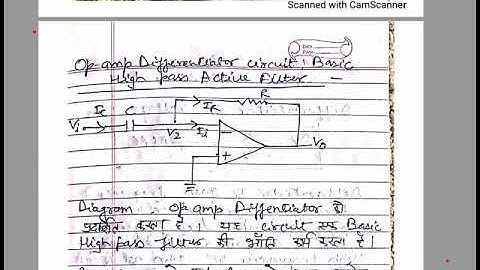 Scanned with CamScanner
Op-amp Differentiator circuit; Basic
High pass Active Filter -
Ic C If R
Vi V2 Ii Vo
- +
Diagram op amp Diffentiator को
प्रदर्शित करता है। यह circuit एक Basic
High pass filter की भाँति कार्य करता है।